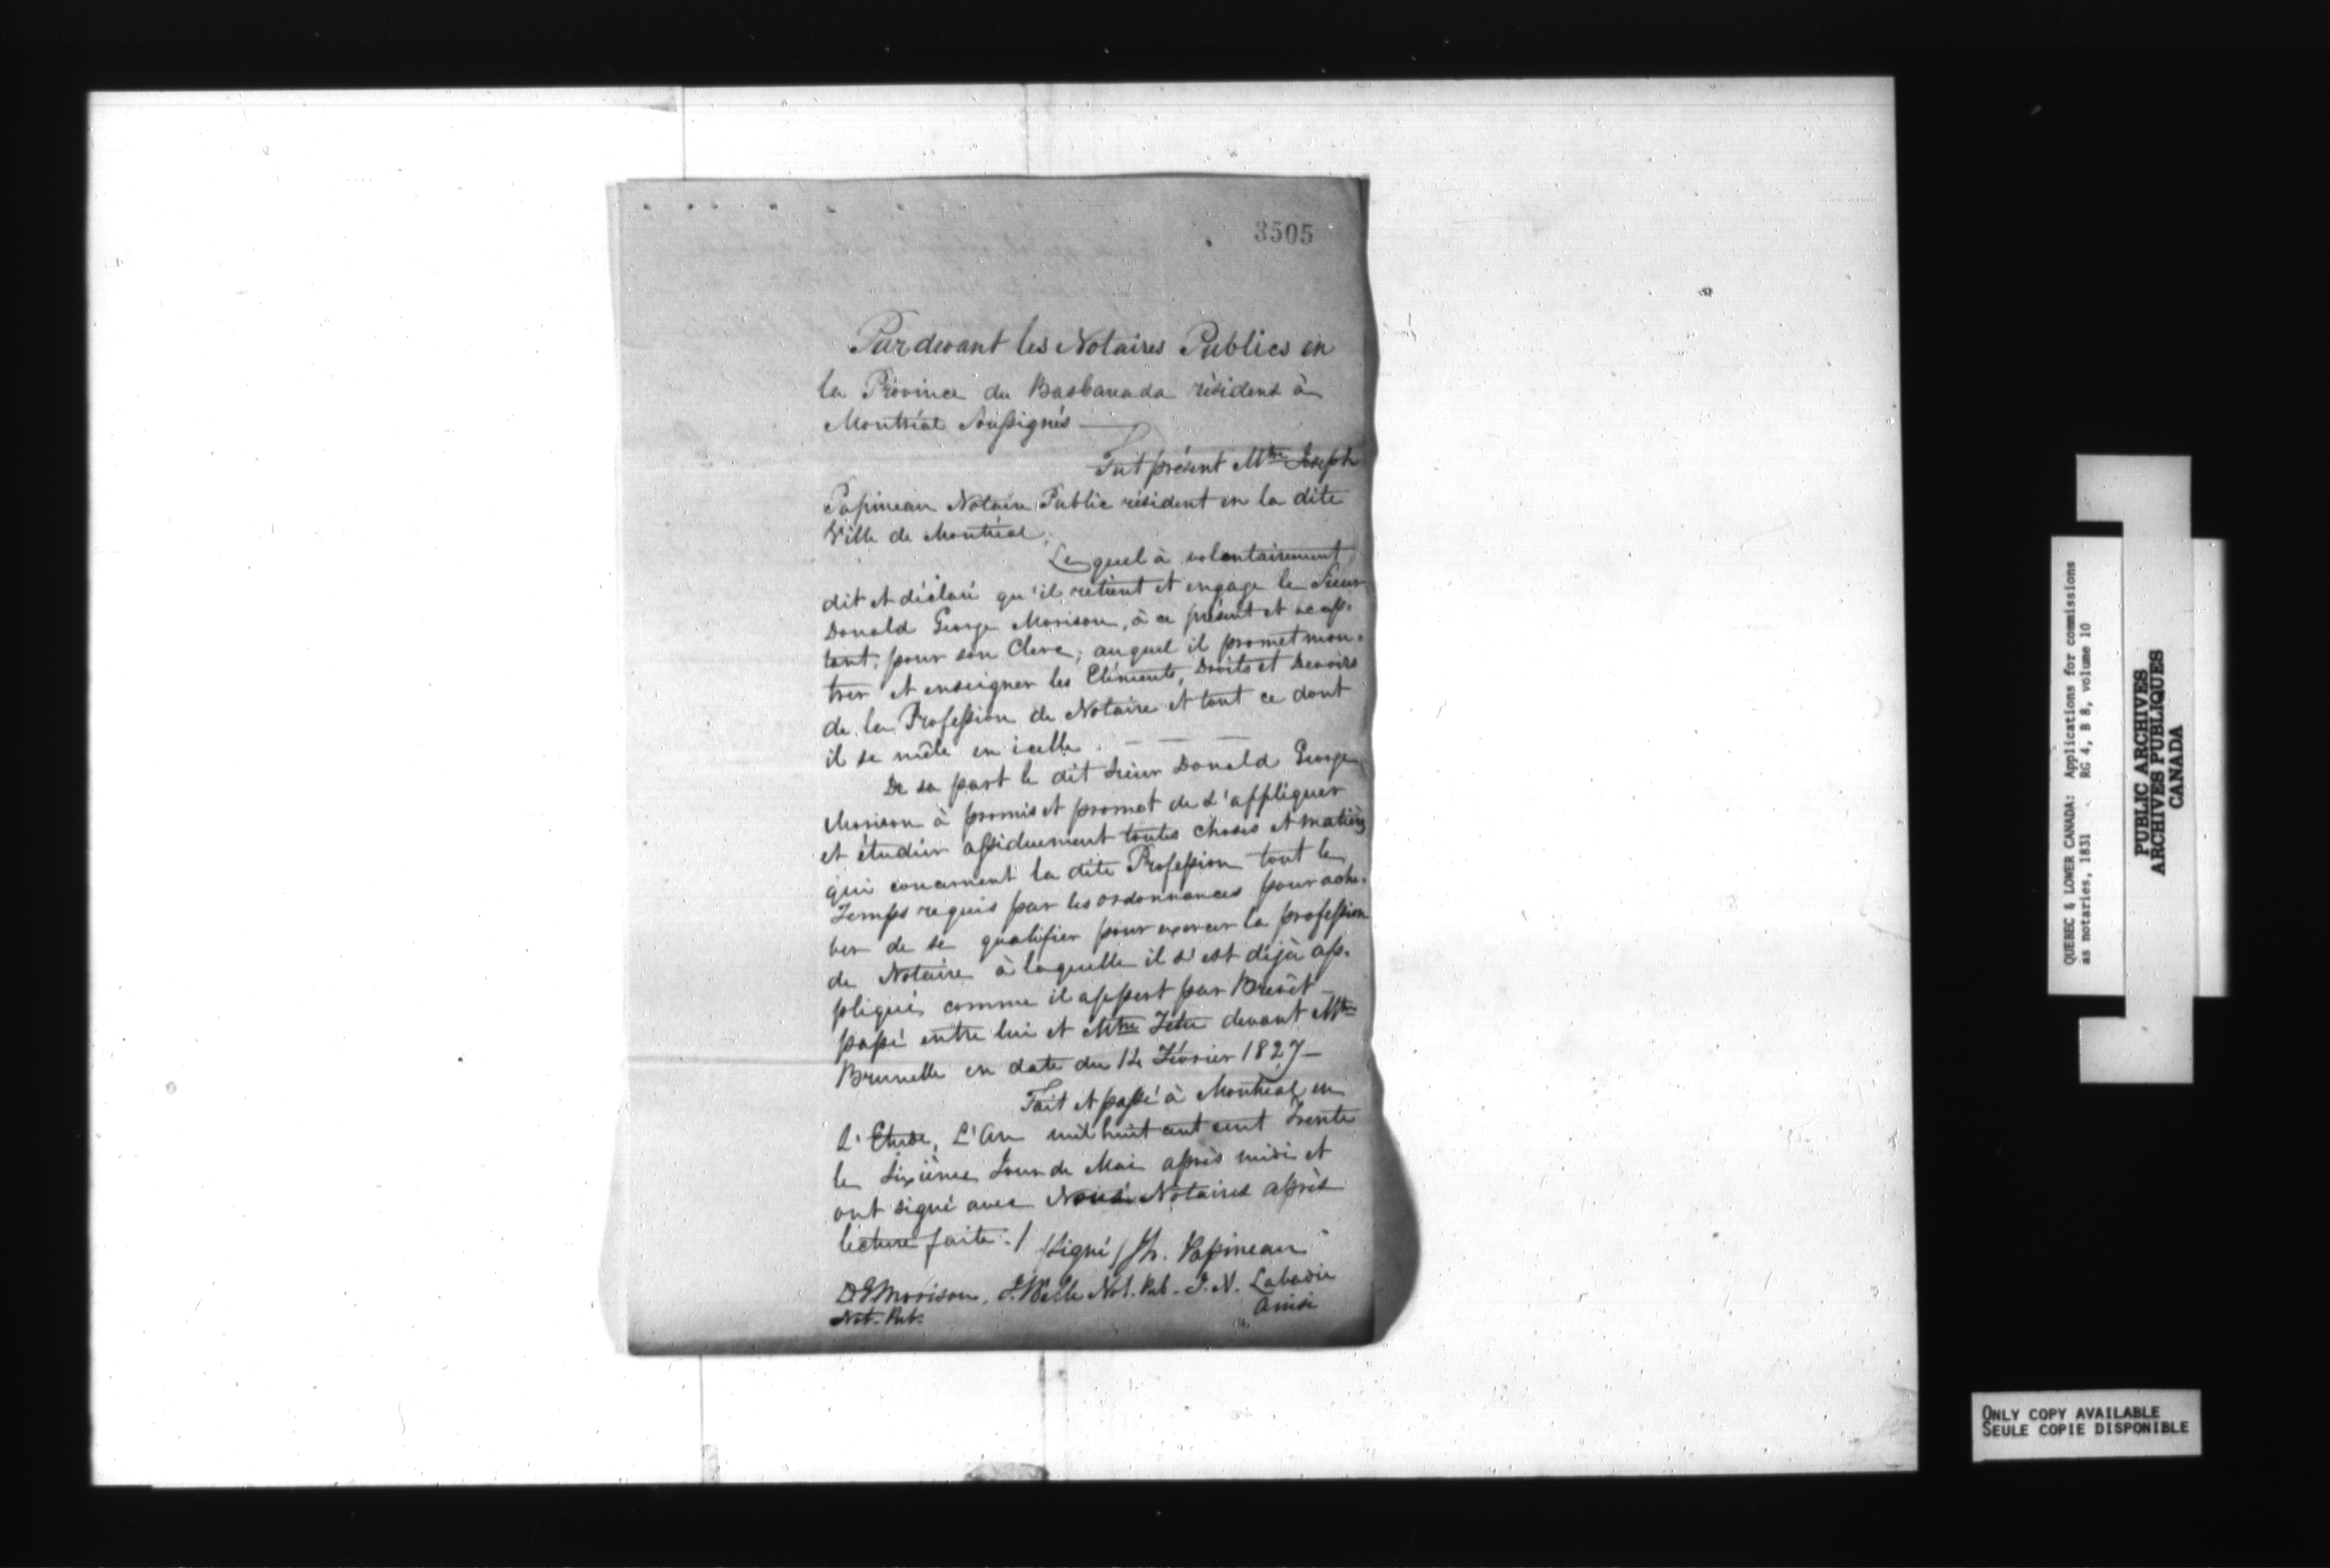 3505
Pardevant les Notaires Publics en
la Province du Bas Canada résidens à
Montréal Soussignés —
Fut présent Mtre Joseph
Papineau Notaire Public résident en la dite
Ville de Montréal.
Lequel à volontairement
dit et déclaré qu'il retient et engage le Sieur
Donald George Morison, à ce présent et accep-
tant, pour son Clerc; auquel il promet mon-
trer et enseigner les Eléments, Droits et Devoirs
de la Profession de Notaire et tout ce dont
il se mêle en icelle.
De sa part le dit Sieur Donald George
Morison à promis et promet de s'appliquer
et étudier assiduement toutes choses et matières
qui concernent la dite Profession tout le
Temps requis par les ordonnances pour ache-
ver de se qualifier pour exercer la profession
de Notaire à laquelle il s'est déjà ap-
pliqué, comme il appert par Brevêt
passé entre lui et Mtre Têtu devant Mtre
Brunelle en date du 12 Février 1827 —
Fait et passé à Montréal en
l'Etude, L'An mil huit cent cent Trente
le Sixième Jour de Mai après midi et
ont signé avec Nous Notaires après
lecture faite ./ (Signé) Jh. Papineau
DGMorison, J. Belle Not. Pub. J. N. Labadie
Not. Pub.
QUEBEC & LOWER CANADA: Applications for commissions
as notaries, 1831 RG 4, B 8, volume 10
PUBLIC ARCHIVES
ARCHIVES PUBLIQUES
CANADA
ONLY COPY AVAILABLE
SEULE COPIE DISPONIBLE